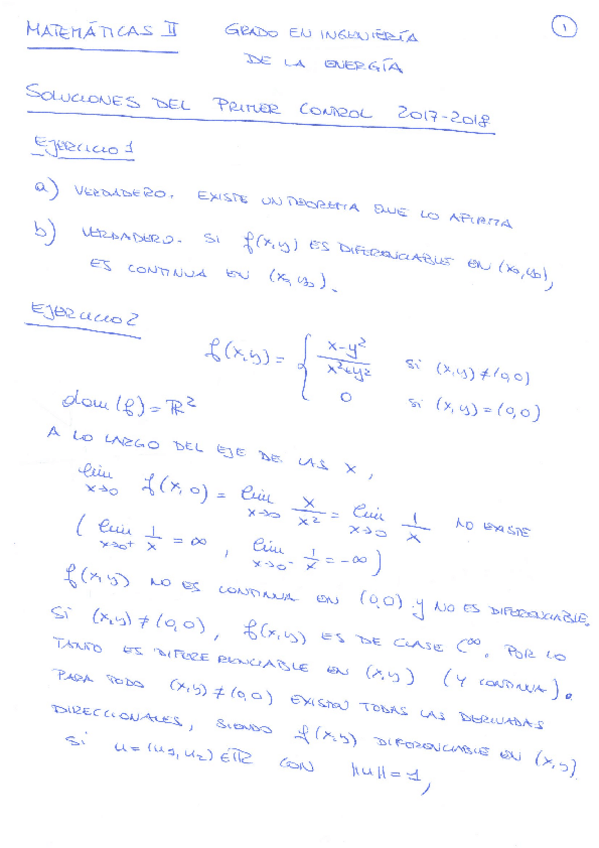 MATEMÁTICAS II GRADO EN INGENIERÍA 1
DE LA ENERGÍA
SOLUCIONES DEL PRIMER CONTROL 2017-2018
EJERCICIO 1
a) VERDADERO. EXISTE UN TEOREMA QUE LO AFIRMA
b) VERDADERO. SI f(x,y) ES DIFERENCIABLE EN (x0,y0),
ES CONTINUA EN (x0,y0).
EJERCICIO 2
f(x,y) = { x-y²/x²+y² si (x,y)≠(0,0)
0 si (x,y)=(0,0)
dom(f) = ℝ²
A LO LARGO DEL EJE DE LAS X,
lim x→0 f(x,0) = lim x→0 x/x² = lim x→0 1/x NO EXISTE
( lim x→0⁺ 1/x = ∞ , lim x→0⁻ 1/x = -∞ )
f(x,y) NO ES CONTINUA EN (0,0) Y NO ES DIFERENCIABLE.
SI (x,y)≠(0,0), f(x,y) ES DE CLASE C∞, POR LO
TANTO ES DIFERERENCIABLE EN (x,y) (Y CONTINUA).
PARA TODO (x,y)≠(0,0) EXISTEN TODAS LAS DERIVADAS
DIRECCIONALES, SIENDO f(x,y) DIFERENCIABLE EN (x,y).
SI u=(u1,u2)∈ℝ CON ||u||=1,